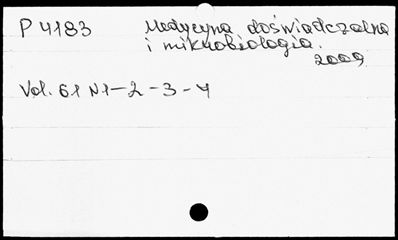 P 4183 Medycyna doświadczalna
i mikrobiologia.
2009
Vol. 61 N1-2-3-4